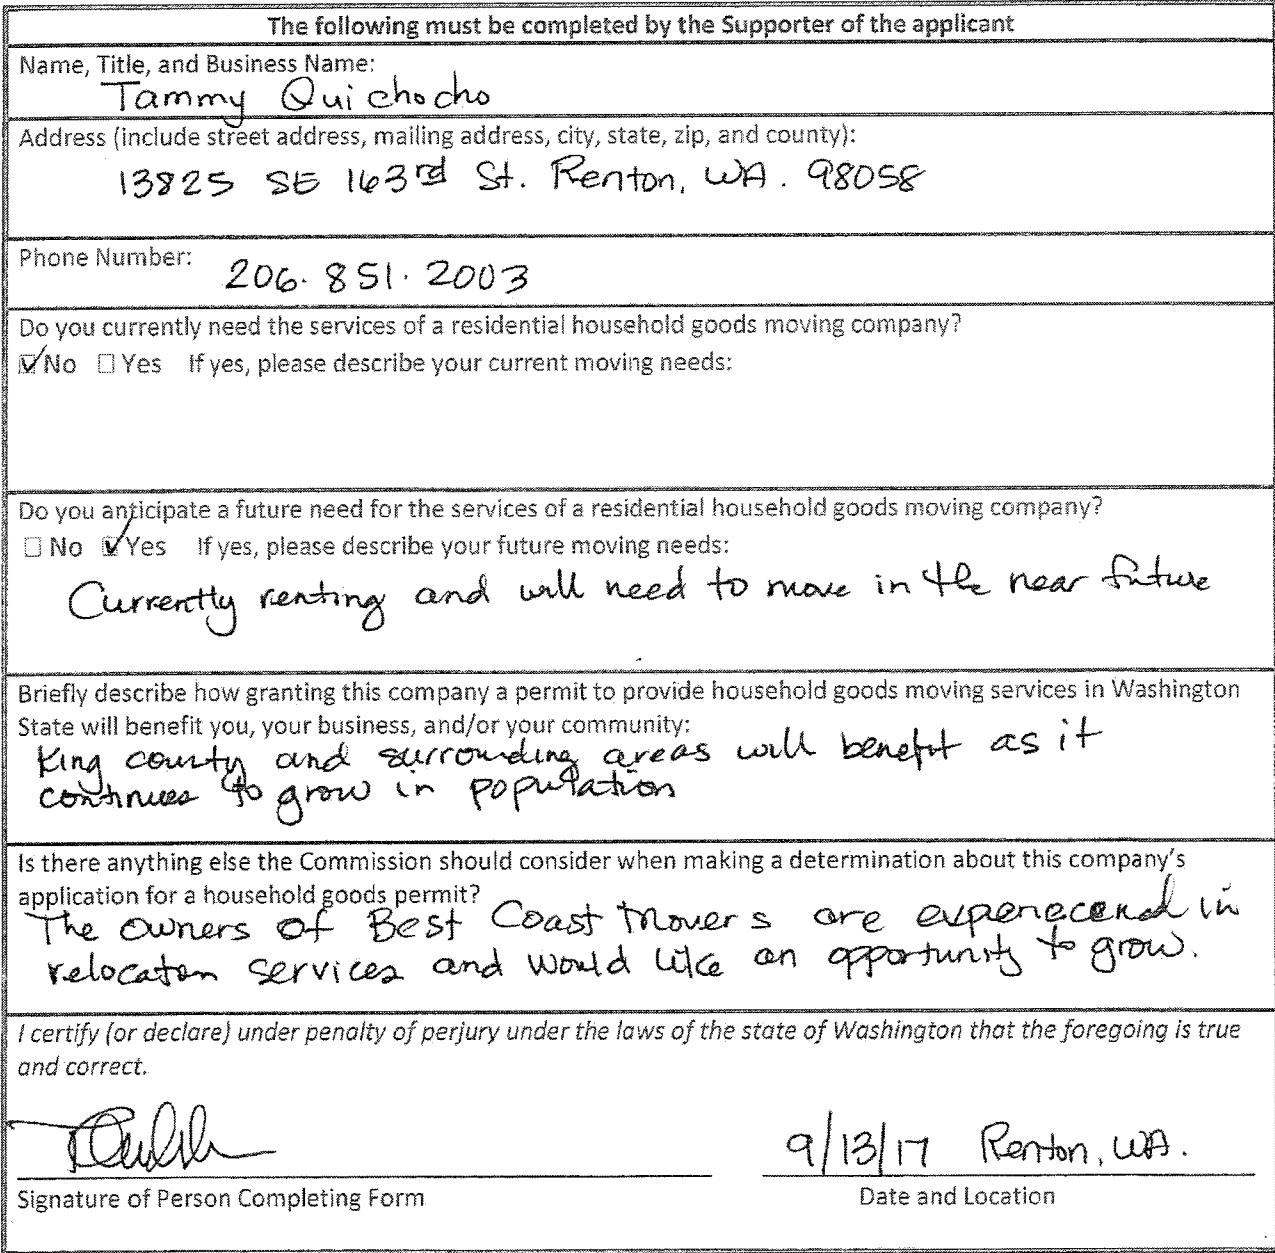 The following must be completed by the Supporter of the applicant
Name, Title, and Business Name:
Tammy Quichocho
Address (include street address, mailing address, city, state, zip, and county):
13825 SE 163rd St. Renton, WA. 98058
Phone Number: 206. 851. 2003
Do you currently need the services of a residential household goods moving company?
☑No ☐Yes If yes, please describe your current moving needs:
Do you anticipate a future need for the services of a residential household goods moving company?
☐No ☑Yes If yes, please describe your future moving needs:
Currently renting and will need to move in the near future
Briefly describe how granting this company a permit to provide household goods moving services in Washington
State will benefit you, your business, and/or your community:
King county and surrounding areas will benefit as it
continues to grow in population
Is there anything else the Commission should consider when making a determination about this company's
application for a household goods permit?
The owners of Best Coast Movers are expenecend in
relocaton services and would like an opportunity to grow.
I certify (or declare) under penalty of perjury under the laws of the state of Washington that the foregoing is true
and correct.
9/13/17 Renton, WA.
Signature of Person Completing Form Date and Location